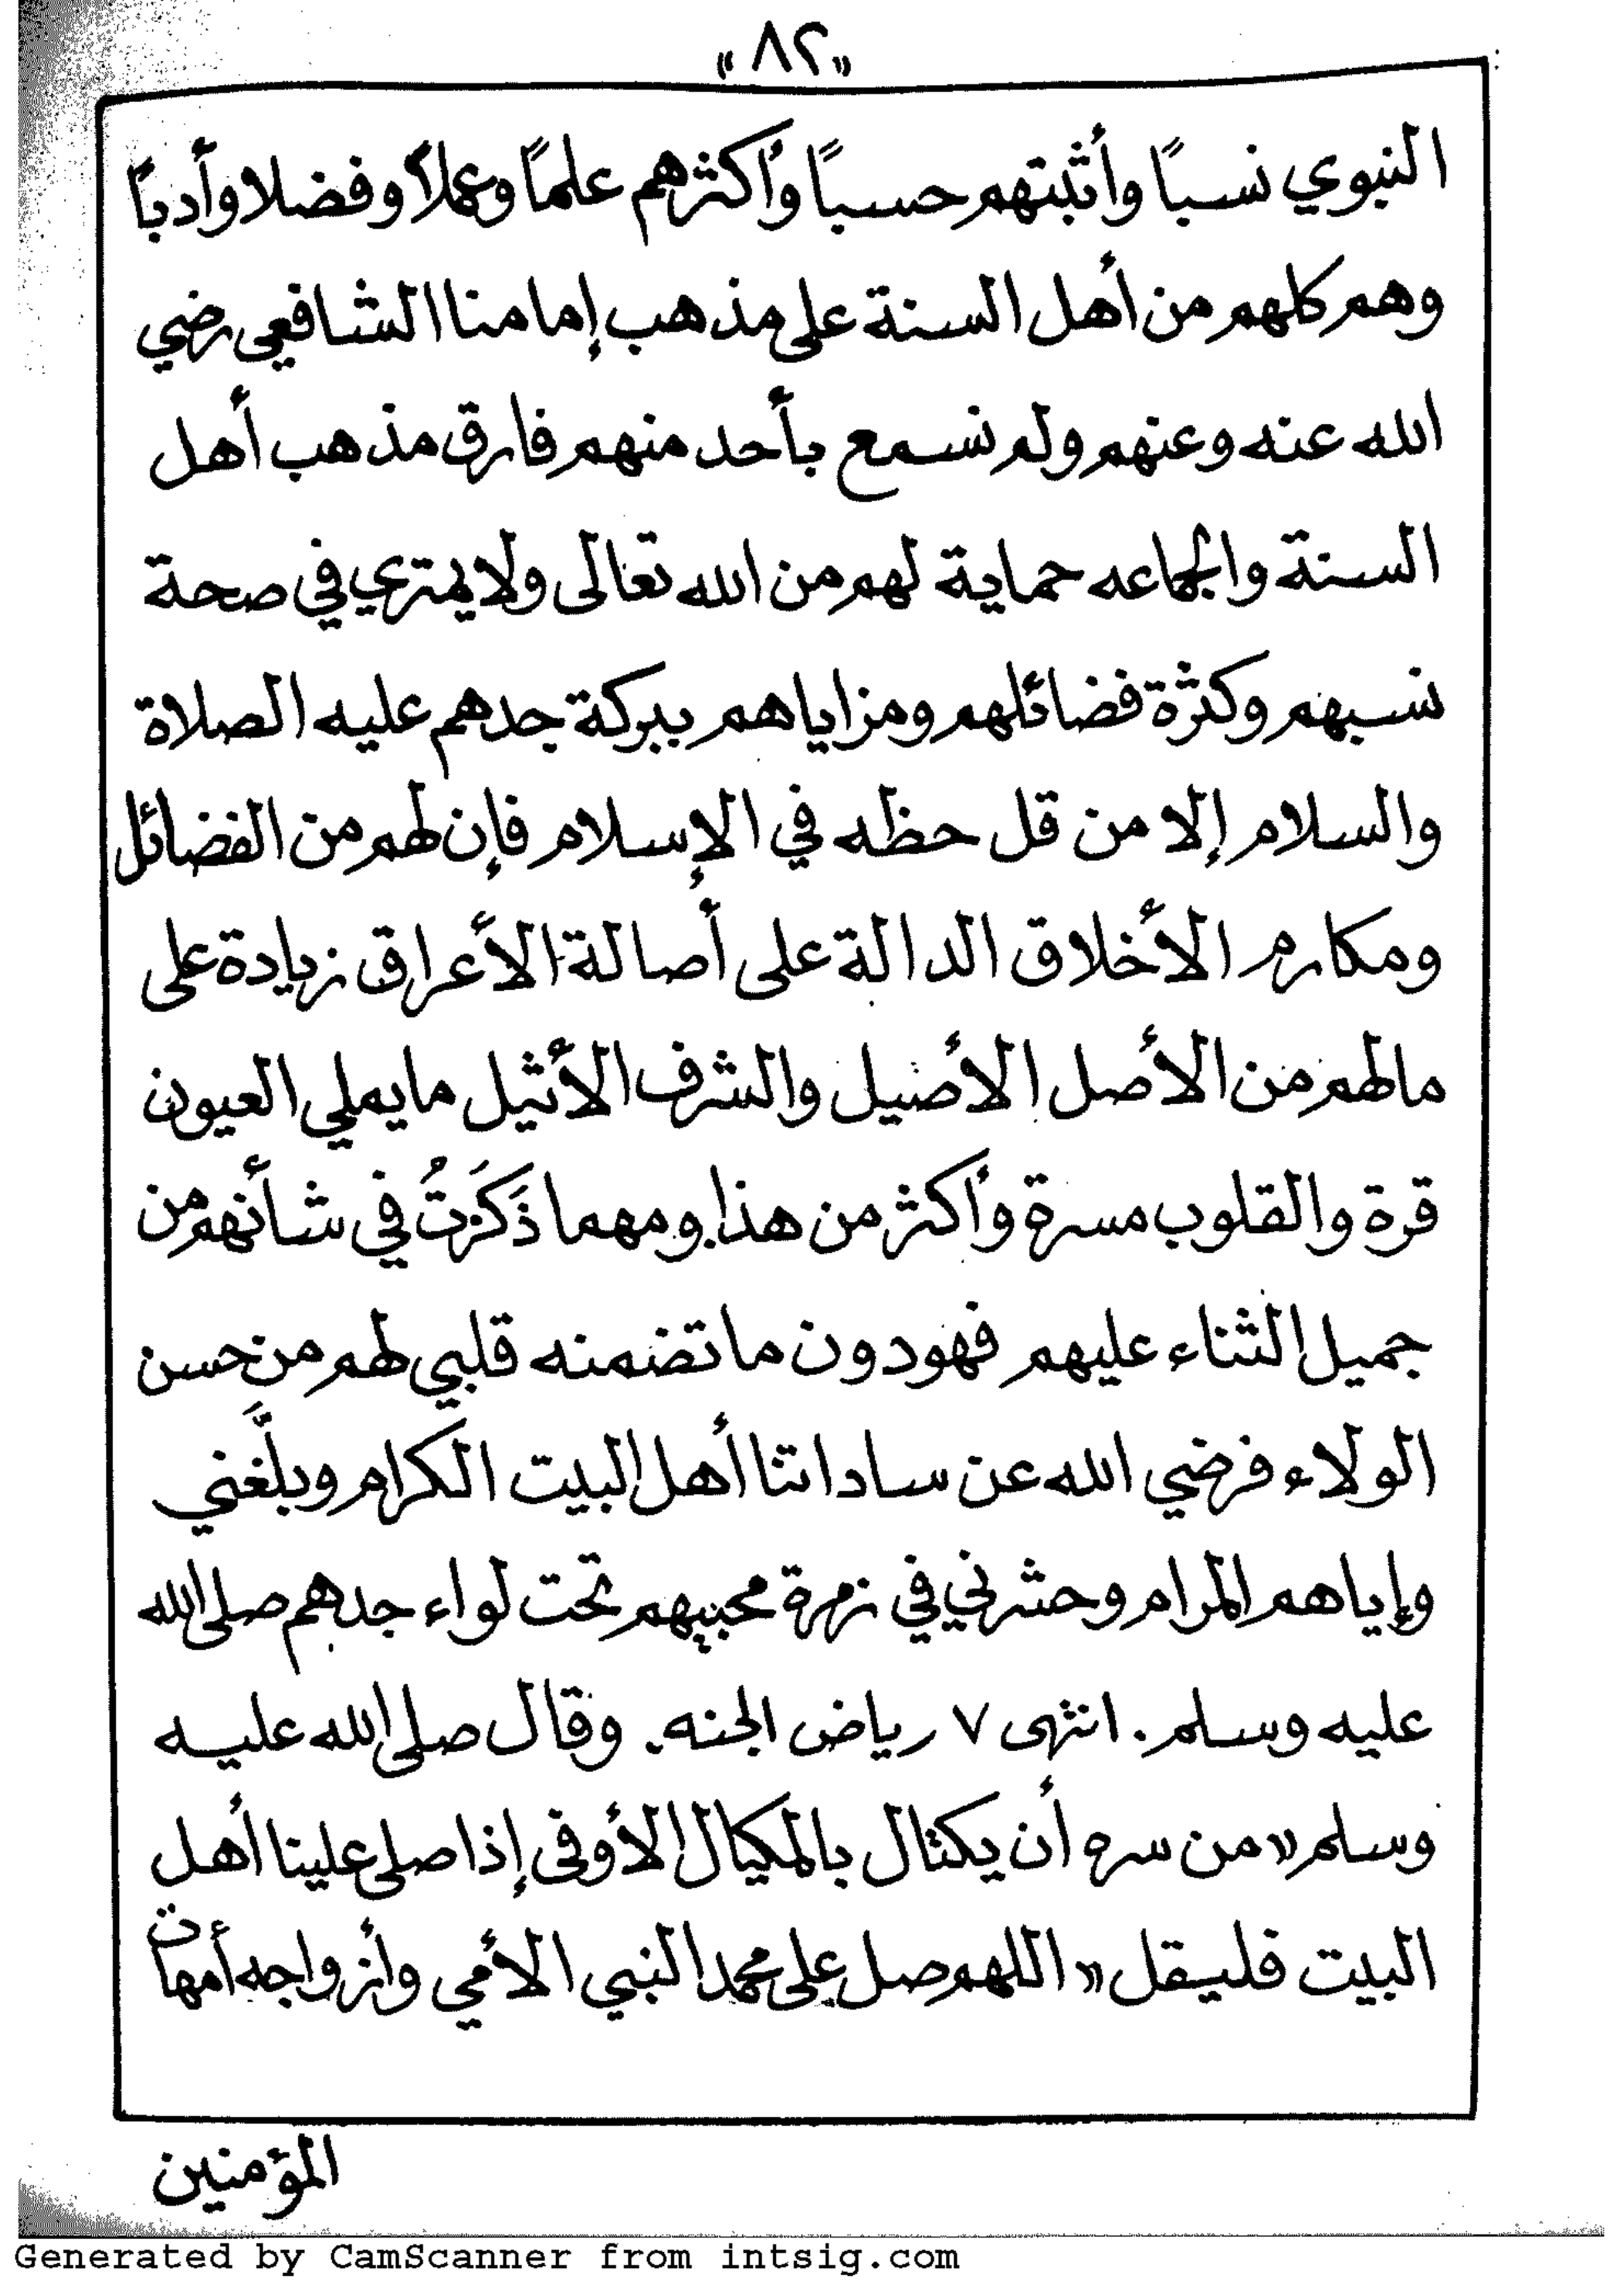 «٨٢»
النبوي نسبًا وأثبتهم حسبًا وأكثرهم علمًا وعملاً وفضلا وأدبًا
وهم كلهم من أهل السنة على مذهب إمامنا الشافعي رضي
الله عنه وعنهم ولم نسمع بأحد منهم فارق مذهب أهل
السنة والجماعه حماية لهم من الله تعالى ولا يمتري في صحة
نسبهم وكثرة فضائلهم ومزاياهم ببركة جدهم عليه الصلاة
والسلام إلا من قل حظه في الإسلام فإن لهم من الفضائل
ومكارم الأخلاق الدالة على أصالة الأعراق زيادة على
مالهم من الأصل الأصيل والشرف الأثيل ما يملي العيون
قرة والقلوب مسرة وأكثر من هذا. ومهما ذَكَرَتُ في شأنهم من
جميل الثناء عليهم فهو دون ما تضمنه قلبي لهم من حسن
الولاء فرضي الله عن ساداتنا أهل البيت الكرام وبلَّغني
وإياهم المرام وحشرني في زمرة محبيهم تحت لواء جدهم صلى الله
عليه وسلم. انتهى ٧ رياض الجنه. وقال صلى الله عليه
وسلم «من سره أن يكتال بالمكيال الأوفى إذا صلى علينا أهل
البيت فليقل «اللهم صل على محمد النبي الأمي وأزواجه أمهات
المؤمنين
Generated by CamScanner from intsig.com